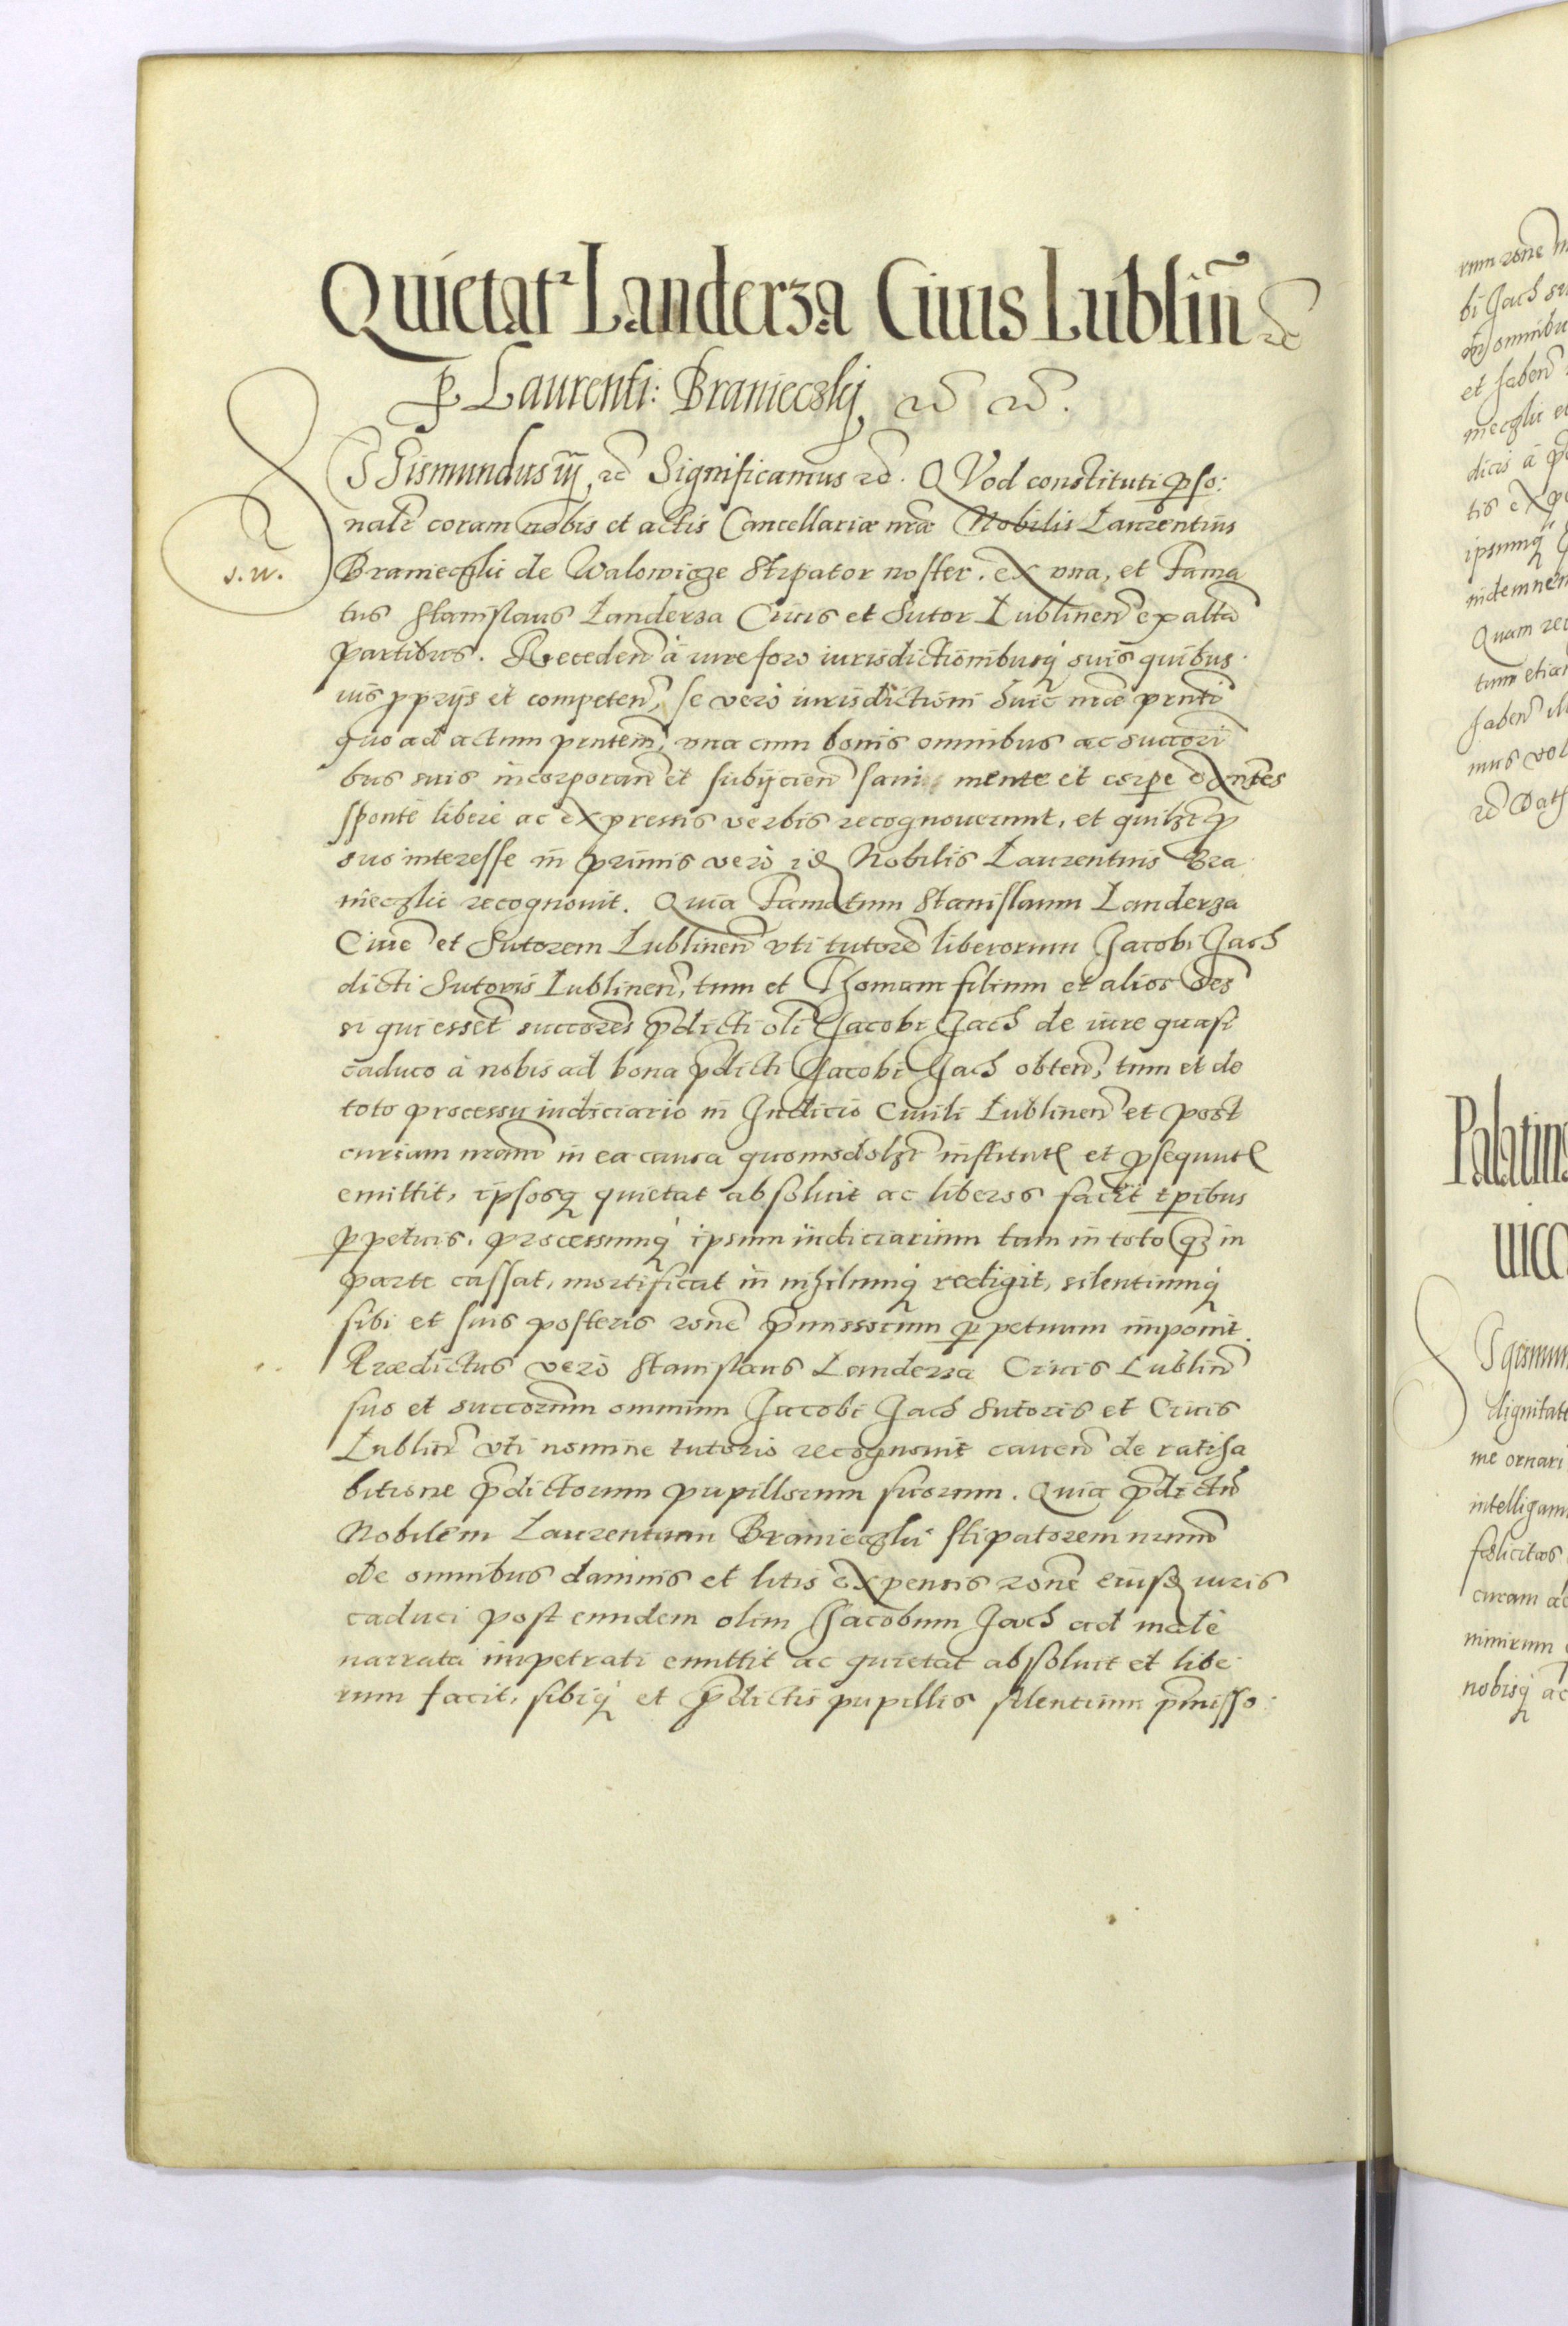 Quietatr Landerza Ciuis Lublin̄ ꝛc
ꝑ Laurenti: Branieczkij ꝛc ꝛc.
SGismundus iij, ꝛc Significamus ꝛc. QVod constituti ꝑso:
nalr̄ coram nobis et actis Cancellariæ nr̄æ Nobilis Laurentius
s. w.
Branieczkii de Walowicze Stipator noster. ex vna, et Fama
tus Stanislaus Landerza Ciuis et Sutor Lublinen̄ ex altā
partibus. Receden̄ à iure foro iurisdictionibusq̢ suis quibus
uis ꝓprijs et competen̄, se verò iurisdictioni huic nr̄æ pn̄ti
quo ad actum pn̄tem, vna cum bonis omnibus ac succori
bus suis incorporan̄ et subijcien̄ sani mente et corpe exn̄tes
sponte libere ac expressis verbis recognouerunt, et quilꝫt ꝓ
suo interesse in primis verò idē Nobilis Laurentius Bra
nieczkii recognouit. Quia Famatum Stanislaum Landerza
Ciuē et Sutorem Lublinen̄ vti tutorē liberorum Jacobi Jach
dicti Sutoris Lublinen̄, tum et Thomam filium et alios oēs
si qui essēt succorēs p̄dicti oli Jacobi Jach de iure quasi
caduco à nobis ad bona p̄dicti Jacobi Jach obten̄, tum et de
toto processu iudiciario in Judicio Ciuili Lublinen̄ et post
curiam nr̄am in ea causa quomodolꝫt institutꝭ et ꝓsequutꝭ
emittit, ipsosq̢ quietat absoluit ac liberos facit tꝑibus
ꝑpetuis. processumq̢ ipsum iudiciarium tam in toto qꝫ in
parte cassat, mortificat in nihilumq̢ redigit, silentiumq̢
sibi et suis posteris rōne p̄missorum ꝑpetuum imponit.
Prædictus verò Stanislaus Landerza Ciuis Lublin̄
suo et succorum omnium Jacobi Jach Sutoris et Ciuis
Lublin̄ vti nomine tutorio recognouit cauen̄ de ratiha
bitione p̄dictorum pupillorum suorum. Quia p̄dictū
Nobilem Laurentium Branieczkii stipatorem nr̄um
de omnibus damnis et litis expensis rōne eiusdē iuris
caduci post eundem olim Jacobum Jach ad male
narrata impetrati emittit ac quietat absoluit et libe
rum facit, sibiq̢ et p̄dictis pupillis silentium p̄misso:
rum rōne
bi Jach
omnibu
et haben̄
nieczkii
dicti à
tis exp
ipsumq̢
indemnem
Quam
tum etiam
haben̄
mus
ꝛc Dat
Palatin
uico
Sgismun
dignitat
me ornari
intelligam
fœlicitas
curam
nimirum
nobisq̢ ac